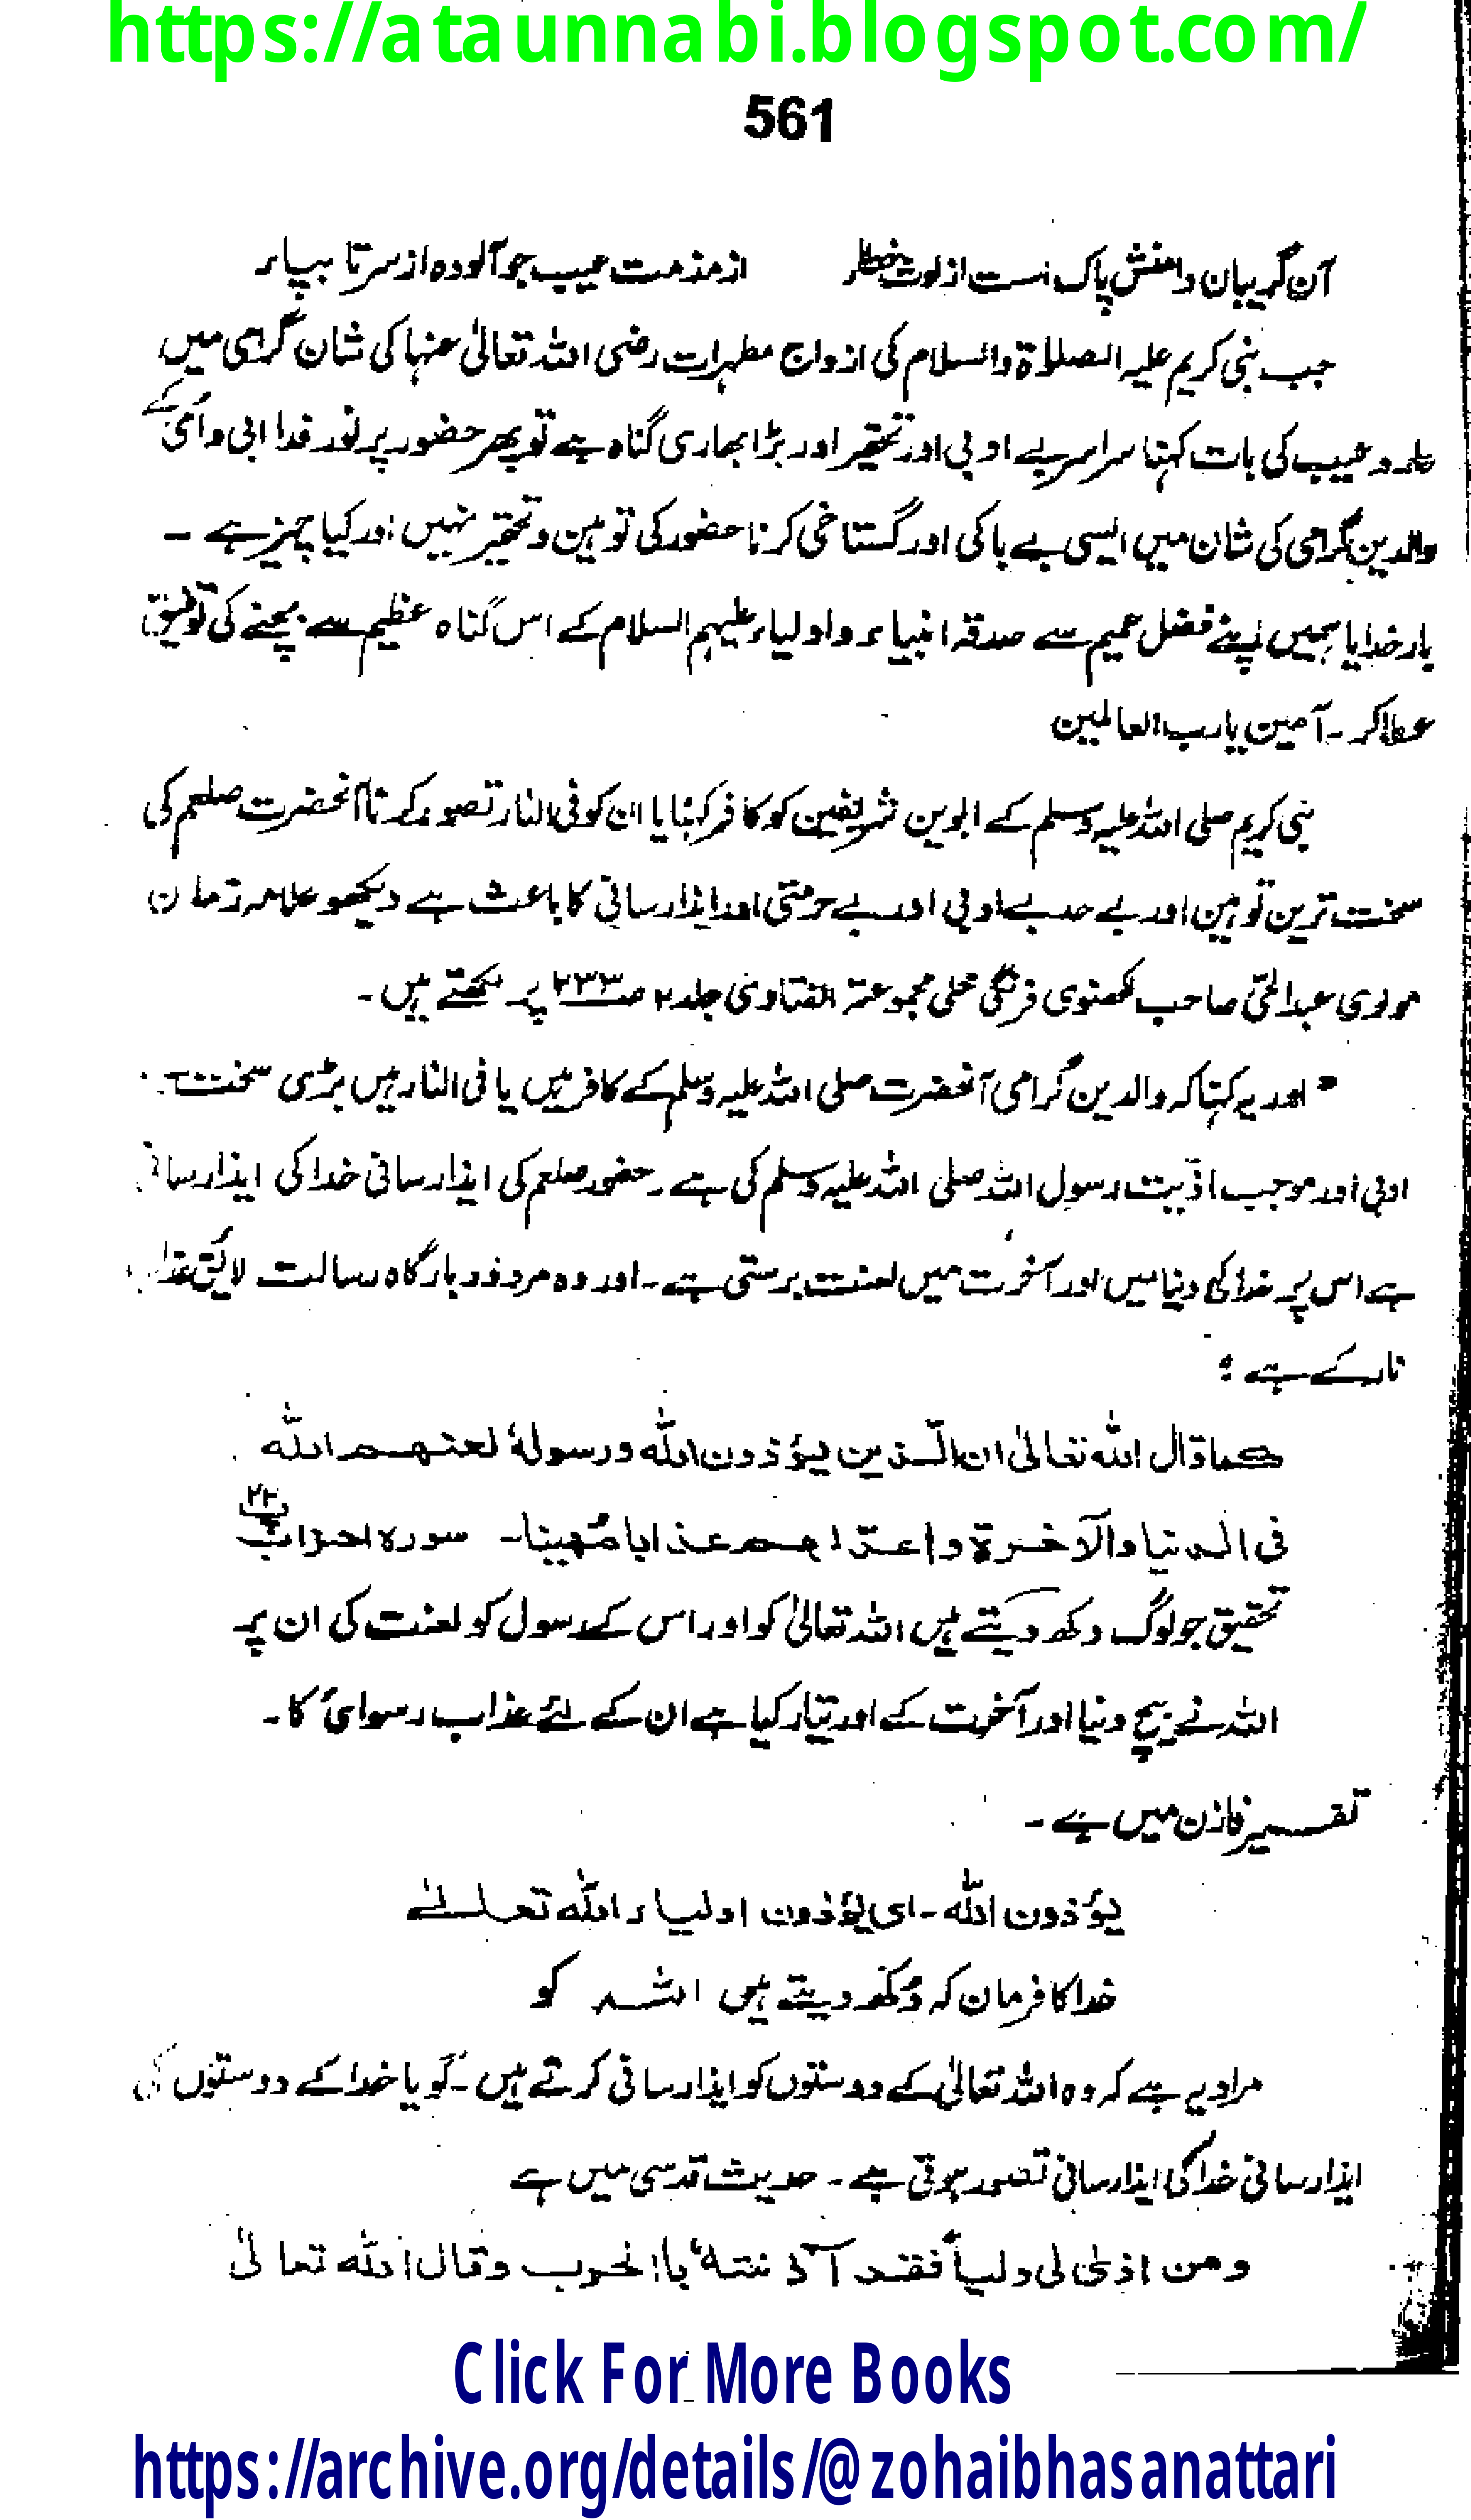 https://ataunnabi.blogspot.com/
561
آن گریبان دامنش پاک است از لوث خطا از مذمت عیب جو آلودہ از سر تا بپاء
جب نبی کریم علیہ الصلاۃ والسلام کی ازواج مطہرات رضی اللہ تعالیٰ عنہا کی شان گرامی میں
عار و عیب کی بات کہنا سراسر بے ادبی اور تحقیر اور بڑا بھاری گناہ ہے تو پھر حضور پر نور فدا ابی و امی کے
والدین گرامی کی شان میں ایسی بے باکی اور گستاخی کرنا حضور کی توہین و تحقیر نہیں اور کیا چیز ہے ۔
بار خدایا ہمیں اپنے فضل عمیم سے صدقہ انبیاء و اولیاء علیہم السلام کے اس گناہ عظیم سے بچنے کی توفیق
عطا کر ۔ آمین یا رب العالمین
نبی کریم صلی اللہ علیہ وسلم کے ابوین شریفین کو کافر کہنا یا ان کو فی النار تصور کرنا آنحضرت صلعم کی
سخت ترین توہین اور بے حد بے ادبی اور بے حرمتی اور ایذار سانی کا باعث ہے دیکھو علامہ زمان
مولوی عبدالحئی صاحب لکھنوی فرنگی محلی مجموعۃ الفتاویٰ جلد ۲ صـ۲۳۳ پر لکھتے ہیں ۔
" اور یہ کہنا کہ والدین گرامی آنحضرت صلی اللہ علیہ وسلم کے کافر ہیں یا فی النار ہیں بڑی سخت
ادبی اور موجب اذیت رسول اللہ صلی اللہ علیہ وسلم کی ہے ۔ حضور صلعم کی ایذار سانی خدا کی ایذار سانی
ہے اس پر خدا کی دنیا میں اور آخرت میں لعنت برستی ہے ۔ اور وہ مردود بارگاہ رسالت لائق عذاب
نار کے ہے ؛
کما قال اللہ تعالیٰ ان الذین یؤذون اللہ ورسولہٗ لعنھم اللہ
فی الدنیا والآخرۃ واعدّ لھم عذابا مُھینا ۔ سورہ احزاب ۲۲
تحقیق جو لوگ دکھ دیتے ہیں اللہ تعالیٰ کو اور اس کے رسول کو لعنت کی ان پر
اللہ نے بیچ دنیا اور آخرت کے اور تیار کیا ہے ان کے لئے عذاب رسوائی کا ۔
تفسیر خازن میں ہے ۔
یؤذون اللہ ۔ ای یؤذون اولیاء اللہ تعالےٰ
خدا کا فرمان کہ دُکھ دیتے ہیں اللہ کو
مراد یہ ہے کہ وہ اللہ تعالیٰ کے دوستوں کو ایذار سانی کرتے ہیں ۔ گویا خدا کے دوستوں کی
ایذار سانی خدا کی ایذار سانی تصور ہوتی ہے ۔ حدیث قدسی میں ہے
ومن اذیٰ لی ولیاً فقد آذنتہٗ بالحرب وقال اللہ تعالیٰ
Click For More Books
https://archive.org/details/@zohaibhasanattari